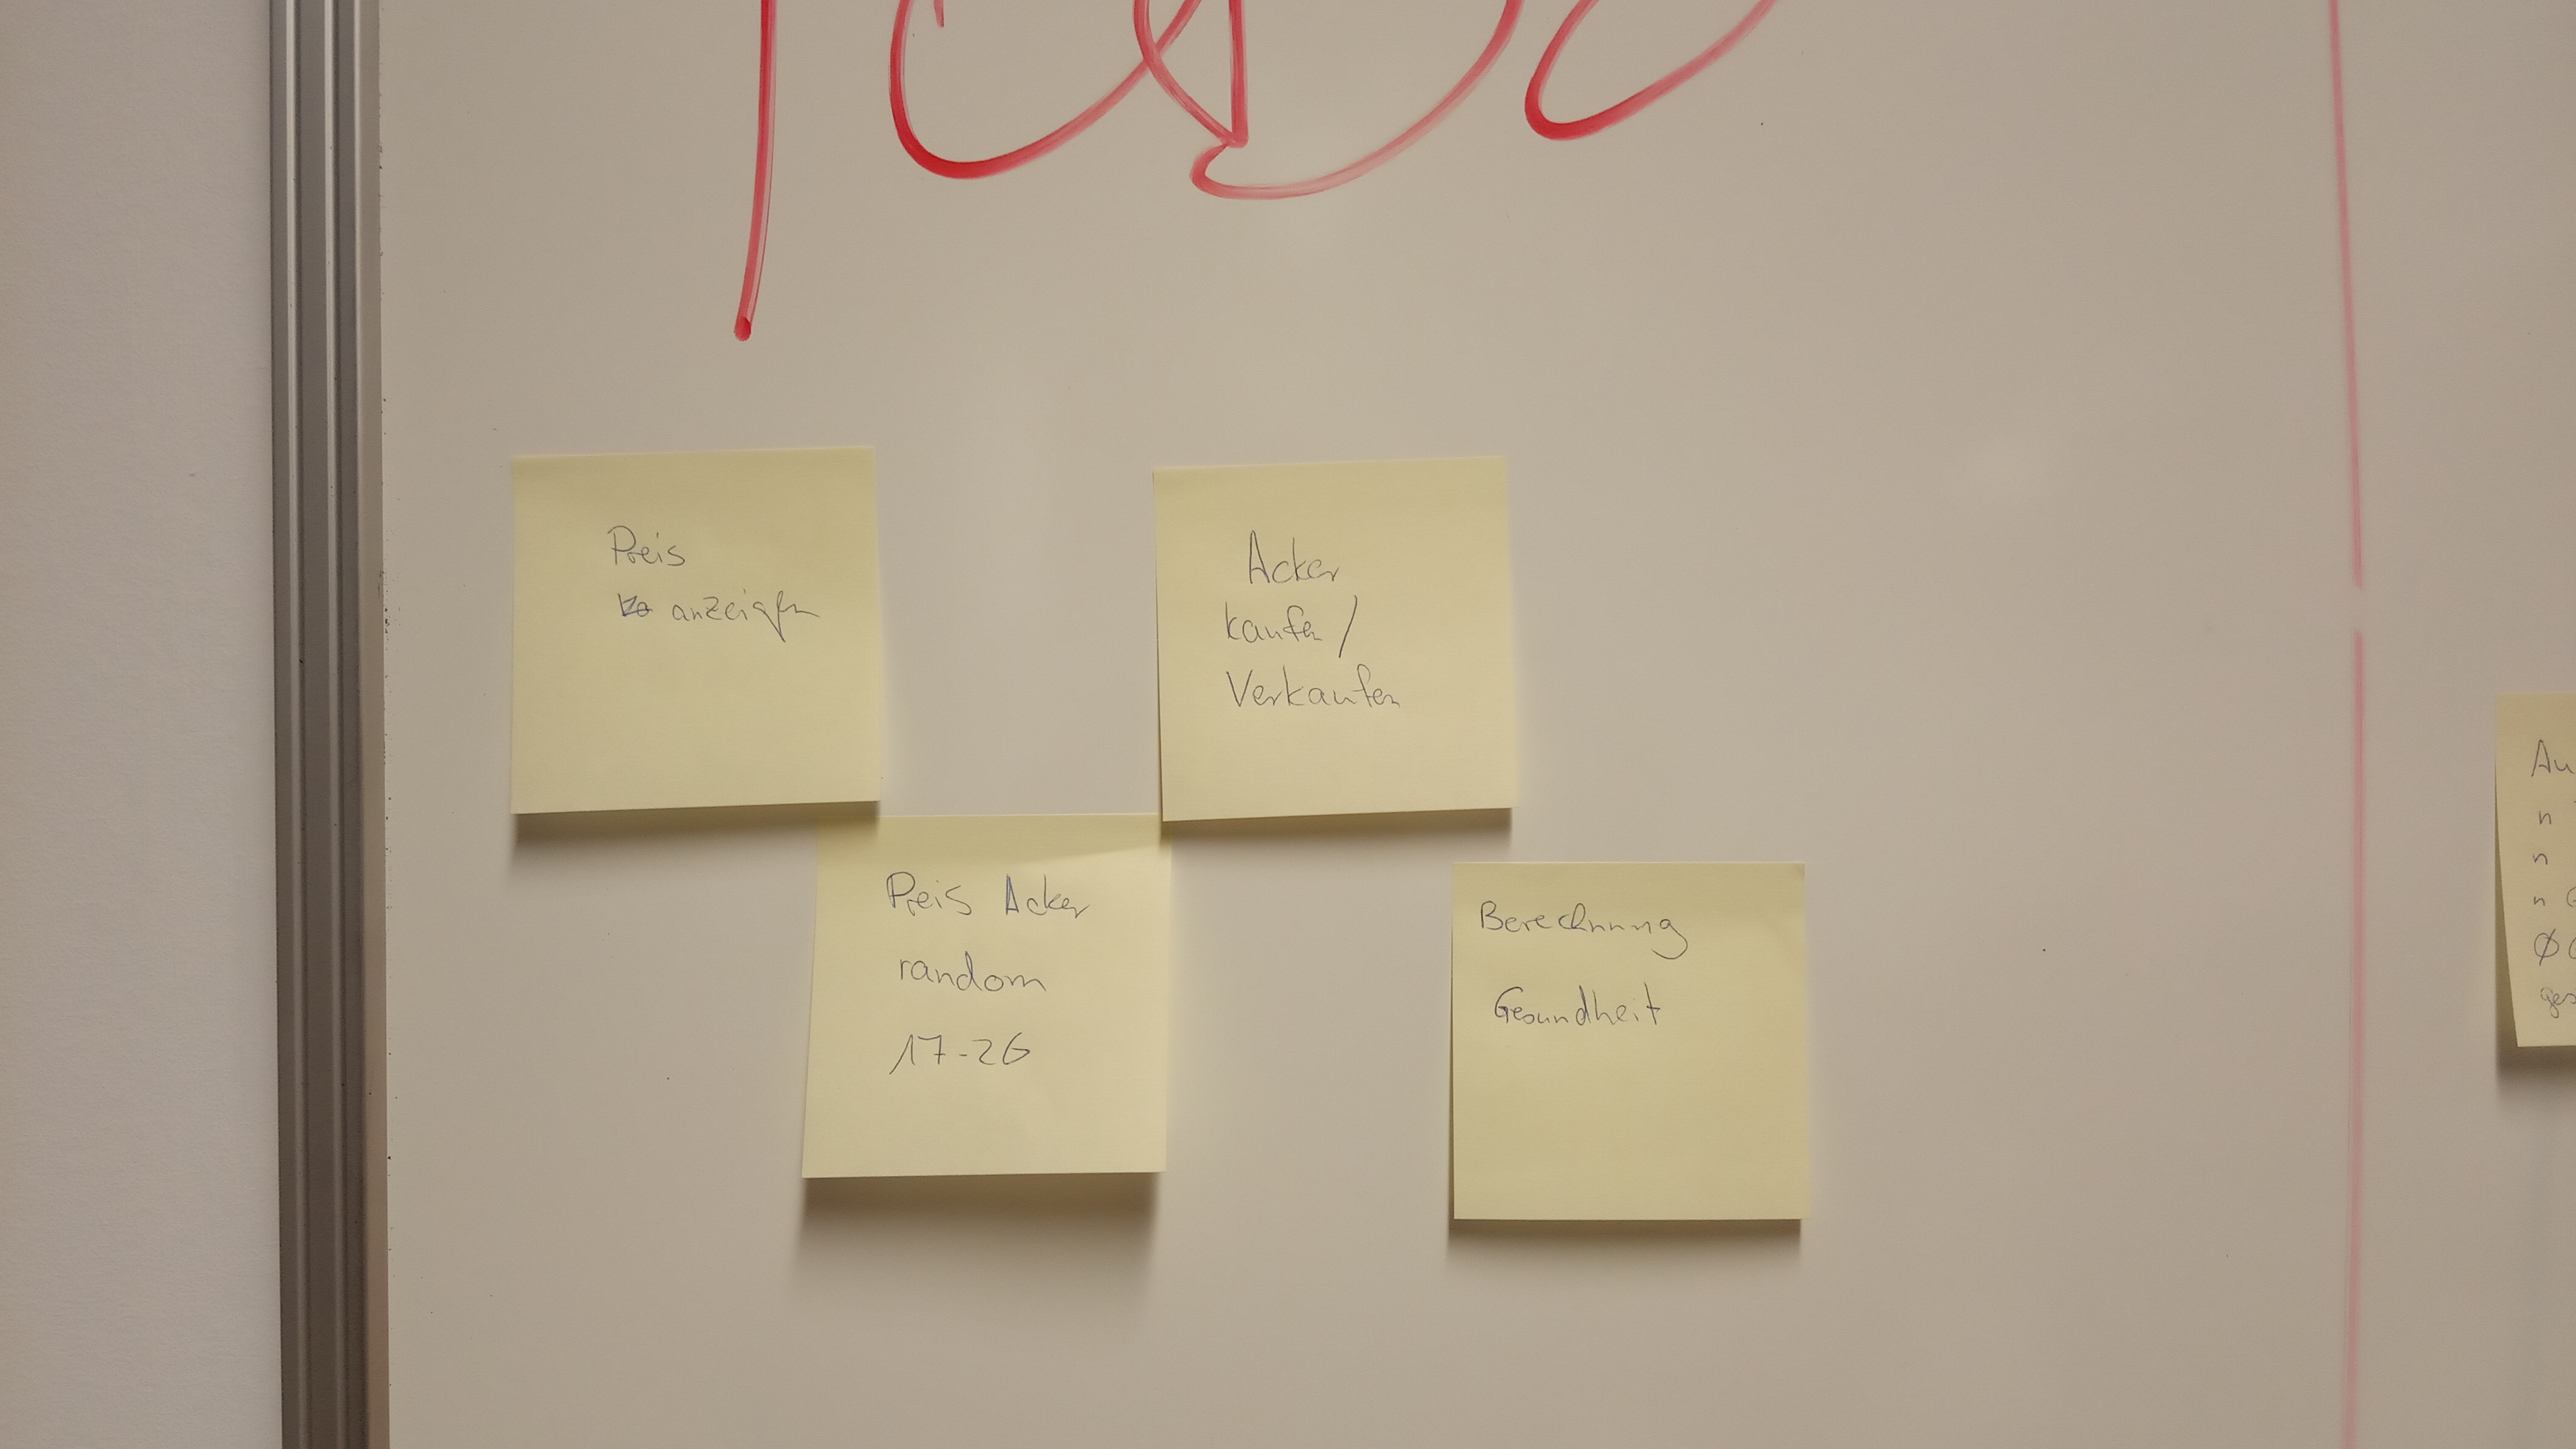 ToDo
Preis
anzeigen
Acker
kaufen/
Verkaufen
Preis Acker
random
17-26
Berechnung
Gesundheit
Au
n
n
n G
Ø
ges